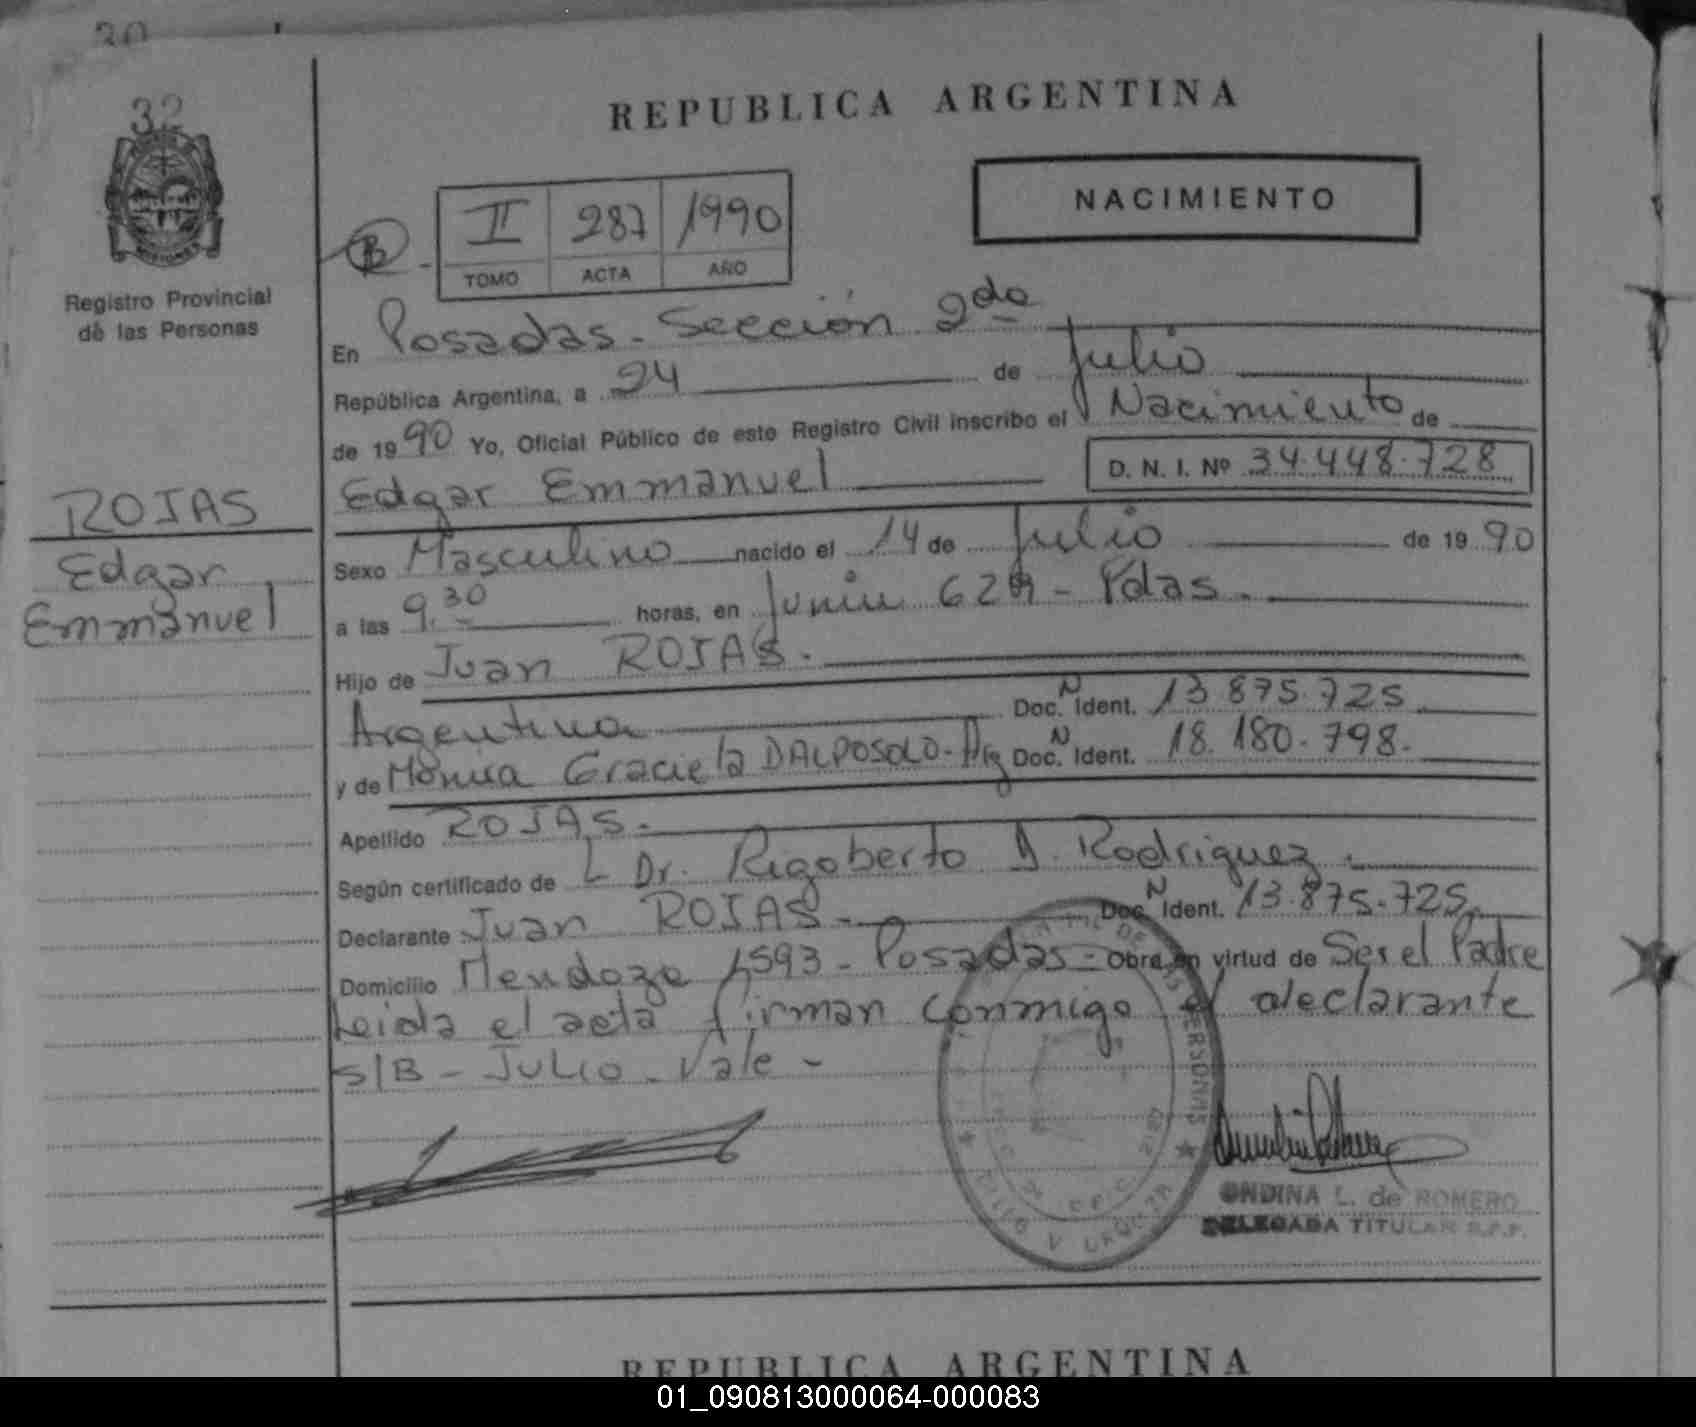 32
REPUBLICA ARGENTINA
NACIMIENTO
B
II 287 1990
TOMO ACTA AÑO
Registro Provincial
de las Personas
En Posadas - Sección 2da
República Argentina, a 24 de Julio
de 1990 Yo, Oficial Público de este Registro Civil inscribo el Nacimiento de
Edgar Emmanuel D. N. I. Nº 34.448.728
ROJAS
Edgar
Emmanuel
Sexo Masculino nacido el 14 de Julio de 1990
a las 9.30 horas, en Junin - Pdas.
Hijo de Juan ROJAS.
Argentina Doc. N Ident. 13.875.725
y de Mónica Graciela DALPOSOLO - Arg Doc. N Ident. 18.180.798.
Apellido ROJAS.
Según certificado de L Dr. Rigoberto Rodriguez.
Declarante Juan ROJAS - Doc. N Ident. 13.875.725
Domicilio Mendoza 1593 - Posadas - Obra en virtud de Ser el Padre
Leida el acta firman conmigo el declarante
S/B - JULIO - Vale -
ONDINA L. de ROMERO
DELEGADA TITULAR R.P.P.
REPUBLICA ARGENTINA
01_090813000064-000083